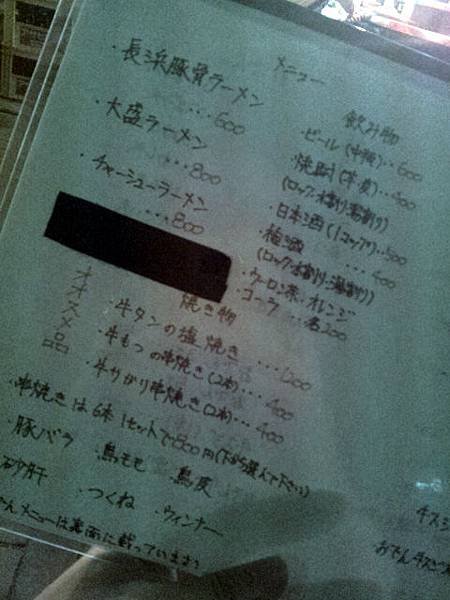 メニュー
・長浜豚骨ラーメン
・・・600
・大盛ラーメン
・・・800
・チャーシューラーメン
・・・800
飲み物
・ビール(中瓶)・・600
・焼酎(芋、麦)・・400
(ロック・水割り・湯割り)
・日本酒(1コップ)・・500
・梅酒 ・・・400
(ロック・水割り・湯割り)
・ウーロン茶・オレンジ
・コーラ ・・・各200
オススメ品
焼き物
・牛タンの塩焼き ・・・1200
・牛もつの串焼き(2本)・・・400
・牛サガリ串焼き(2本)・・・400
・串焼きは6本1セットで800円(下から選んで下さい)
・豚バラ ・鳥モモ ・鳥皮
砂肝 ・つくね ・ウィンナー
でんメニューは裏面に載っています
牛スジ
おでん牛スジ